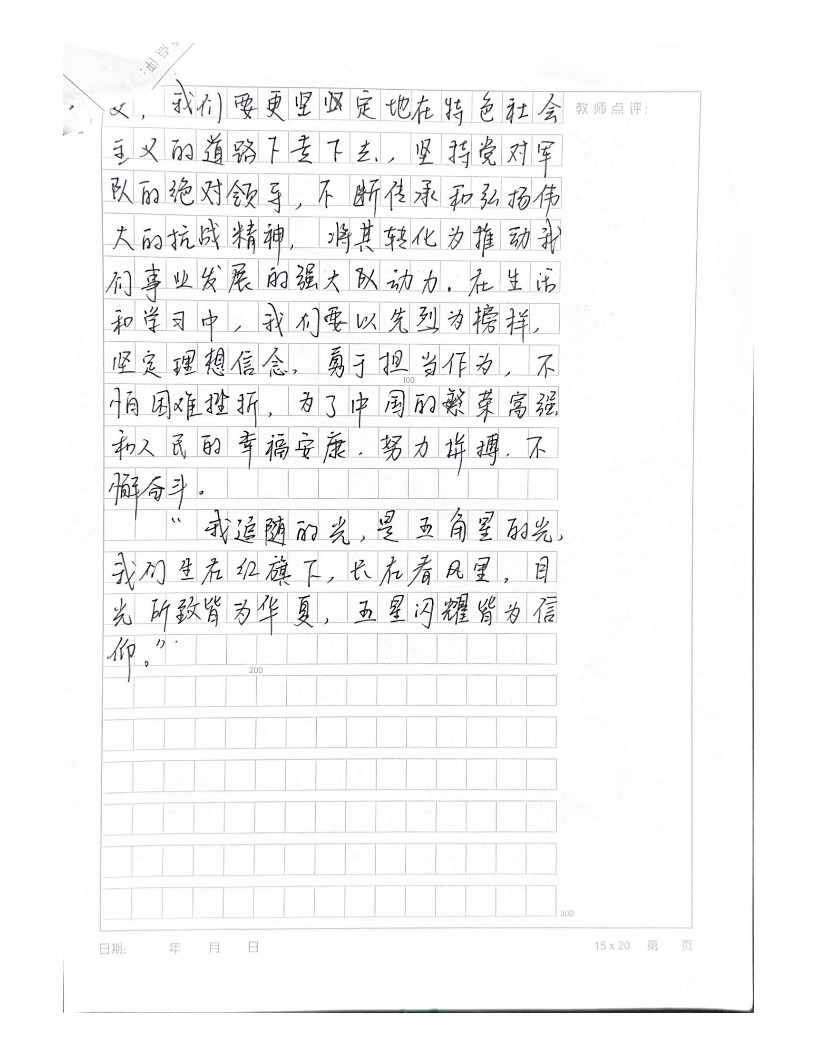 义，我们要更坚坚定地在特色社会
教师点评：
主义的道路下走下去，坚持党对军
队的绝对领导，不断传承和弘扬伟
大的抗战精神，将其转化为推动我
们事业发展的强大队动力。在生活
和学习中，我们要以先烈为榜样，
坚定理想信念，勇于担当作为，不
100
怕困难挫折，为了中国的繁荣富强
和人民的幸福安康，努力拚搏，不
懈奋斗。
“我追随的光，是五角星的光，
我们生在红旗下，长在春风里，目
光所致皆为华夏，五星闪耀皆为信
仰。”
200
300
日期： 年 月 日 15 x 20 第 页